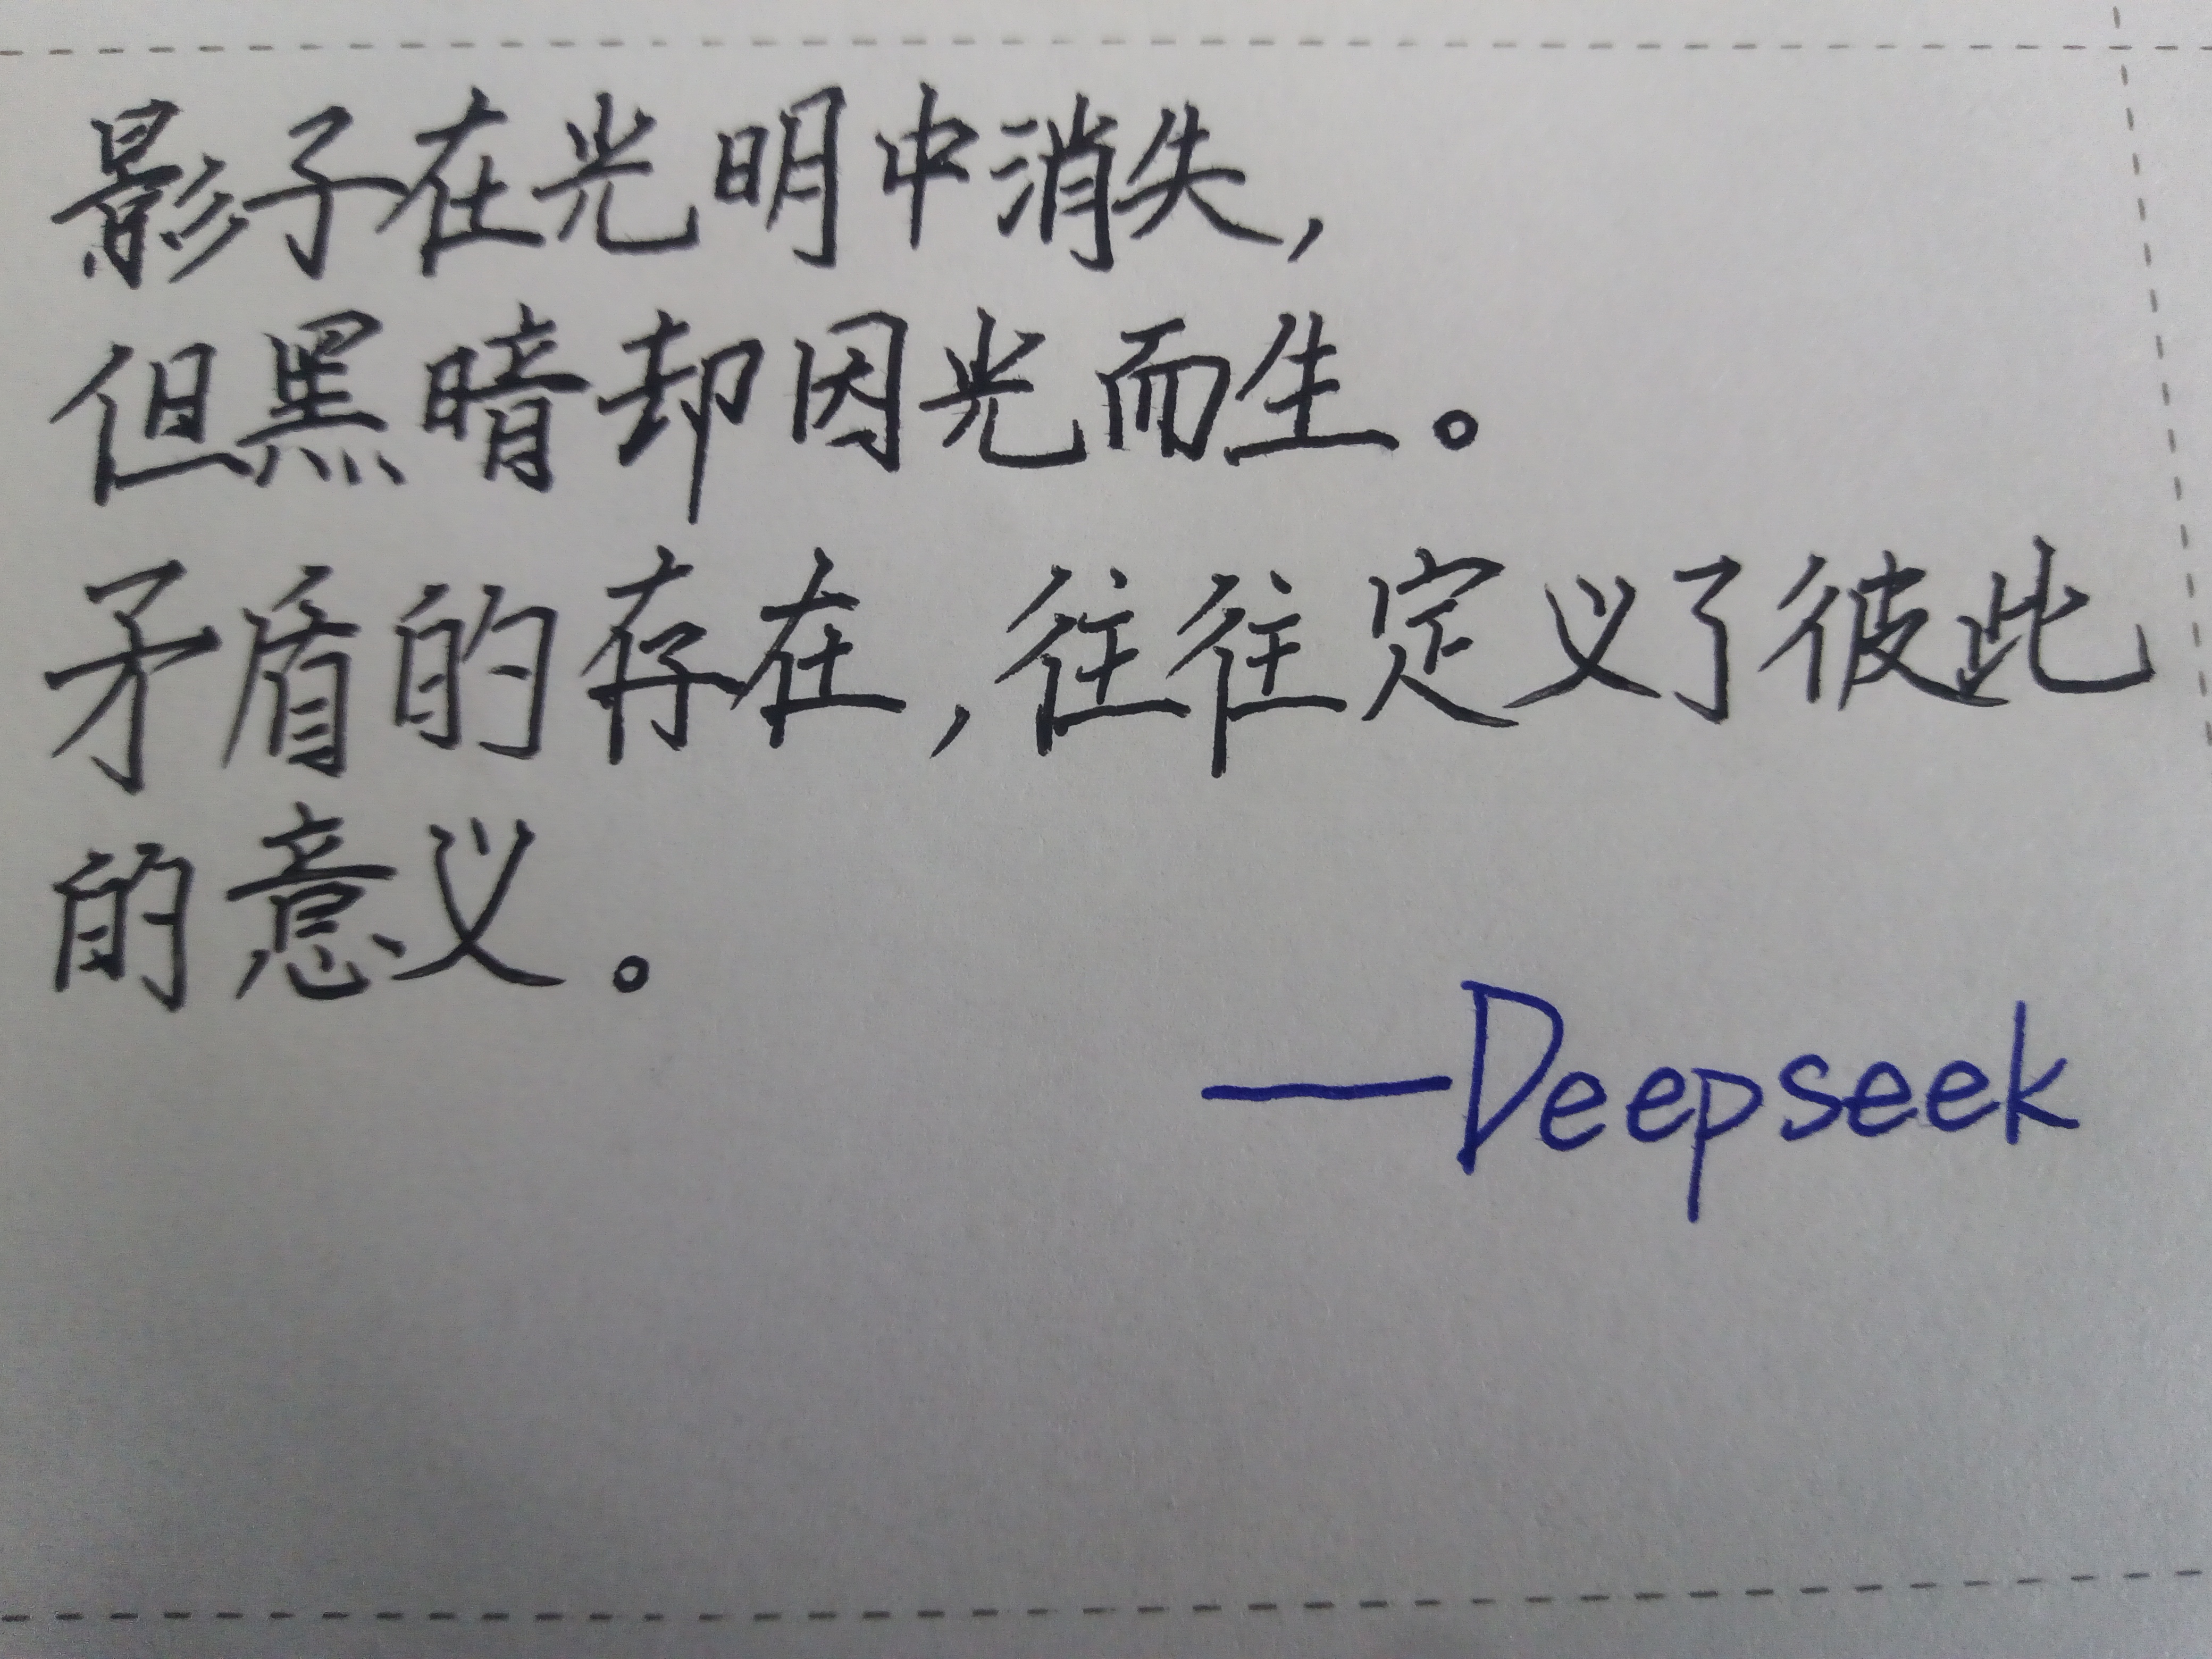 影子在光明中消失,
但黑暗却因光而生。
矛盾的存在,往往定义了彼此
的意义。
—Deepseek